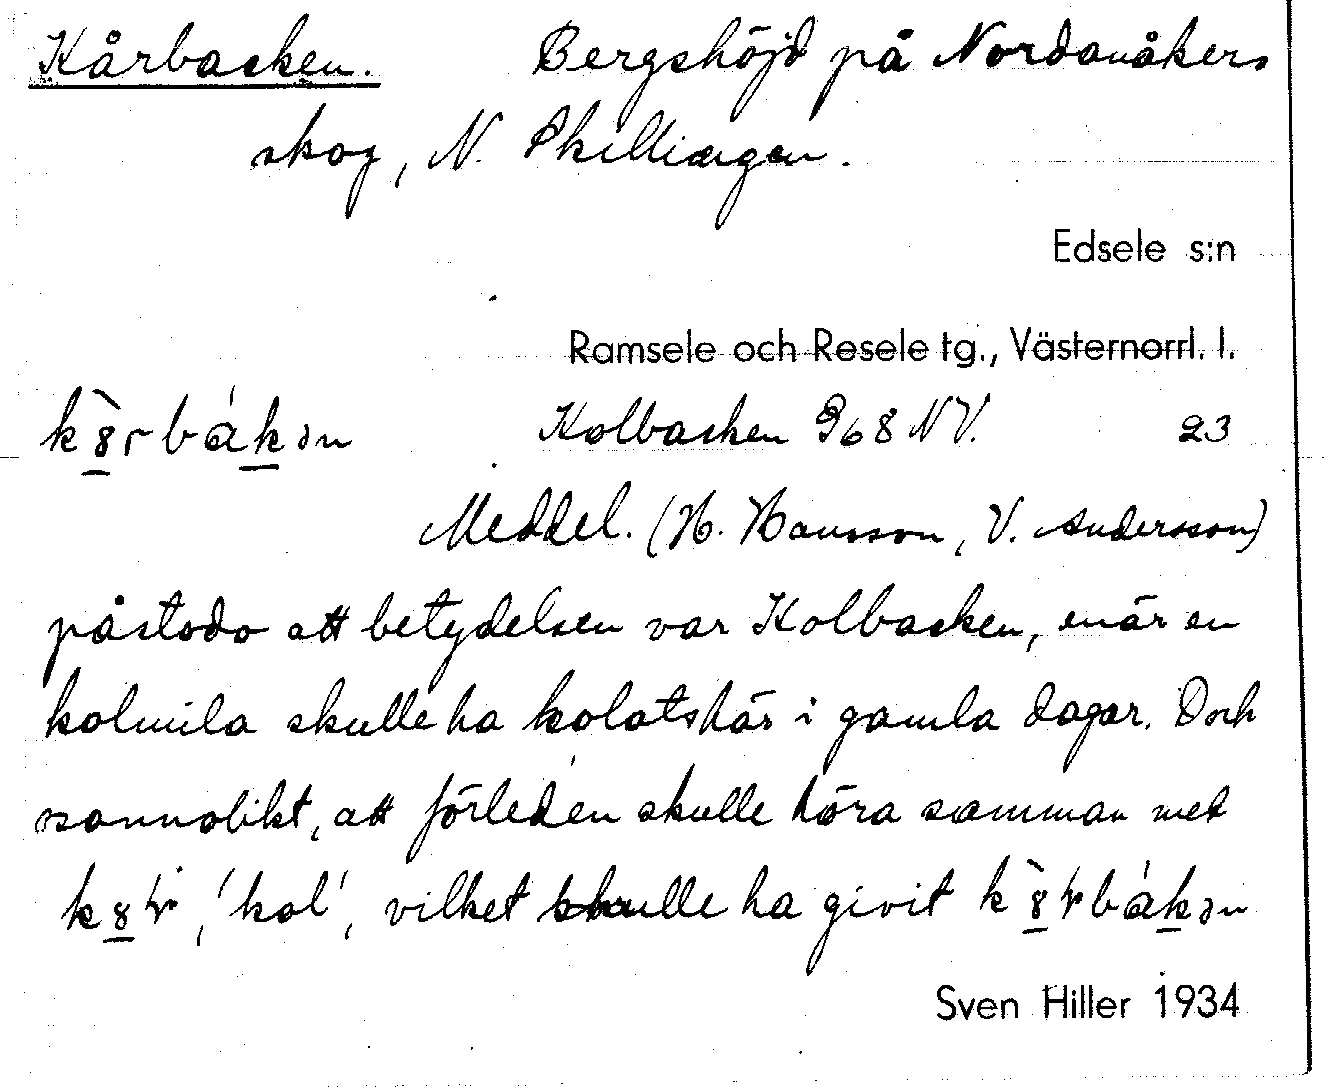 Kårbacken. Bergshöjd på Nordanåkers
skog, N. Skillingen.
Edsele s:n
Ramsele och Resele tg., Västernorrl. l.
kȣ̀rbákən Kolbacken 968 NV. 23
Meddel. (H. Hansson, V. Andersson)
påstodo att betydelsen var Kolbacken, enär en
kolmila skulle ha kolats här i gamla dagar. Dock
sannolikt, att förleden skulle höra samman med
'kol', vilket skulle ha givit
Sven Hiller 1934